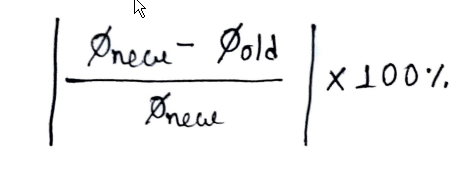 | (Ønew - Øold) / Ønew | × 100%